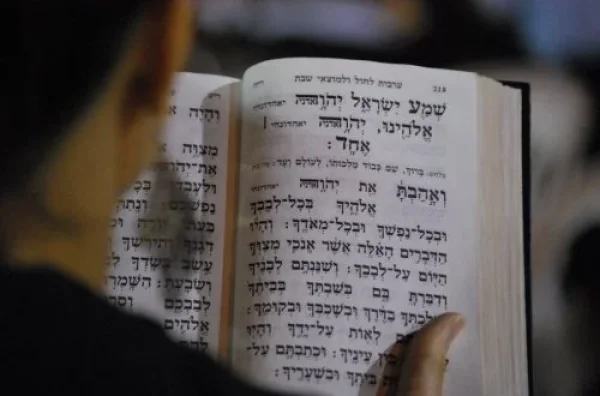 ערבית לחול ולמוצאי שבת
שְׁמַע יִשְׂרָאֵל יְהֹוָה יאהדונהי
אֱלֹהֵינוּ, יְהֹוָה יאהדונהי |
אֶחָד:
בלחש: בָּרוּךְ, שֵׁם כְּבוֹד מַלְכוּתוֹ, לְעוֹלָם וָעֶד:
וְאָהַבְתָּ אֵת יְהֹוָה יאהדונהי
אֱלֹהֶיךָ בְּכָל-לְבָבְךָ
וּבְכָל-נַפְשְׁךָ וּבְכָל-מְאֹדֶךָ: וְהָיוּ
הַדְּבָרִים הָאֵלֶּה אֲשֶׁר אָנֹכִי מְצַוְּךָ
הַיּוֹם עַל-לְבָבֶךָ: וְשִׁנַּנְתָּם לְבָנֶיךָ
וְדִבַּרְתָּ בָּם בְּשִׁבְתְּךָ בְּבֵיתֶךָ
בַדֶּרֶךְ וּבְשָׁכְבְּךָ וּבְקוּמֶךָ:
לְאוֹת עַל-יָדֶךָ וְהָיוּ
בֵּין עֵינֶיךָ: וּכְתַבְתָּם עַל-
בֵּיתֶךָ וּבִשְׁעָרֶיךָ:
וְהָיָה
מִצְוֹת
אֶת-יְהֹוָה
וּלְעָבְדוֹ
נַפְשְׁכֶם: וְנָתַתִּי
בְּעִתּוֹ יוֹרֶה
דְגָנֶךָ וְתִירֹשְׁךָ
עֵשֶׂב בְּשָׂדְךָ
וְשָׂבָעְתָּ: הִשָּׁמְרוּ
לְבַבְכֶם וְסַרְתֶּם
אֱלֹהִים